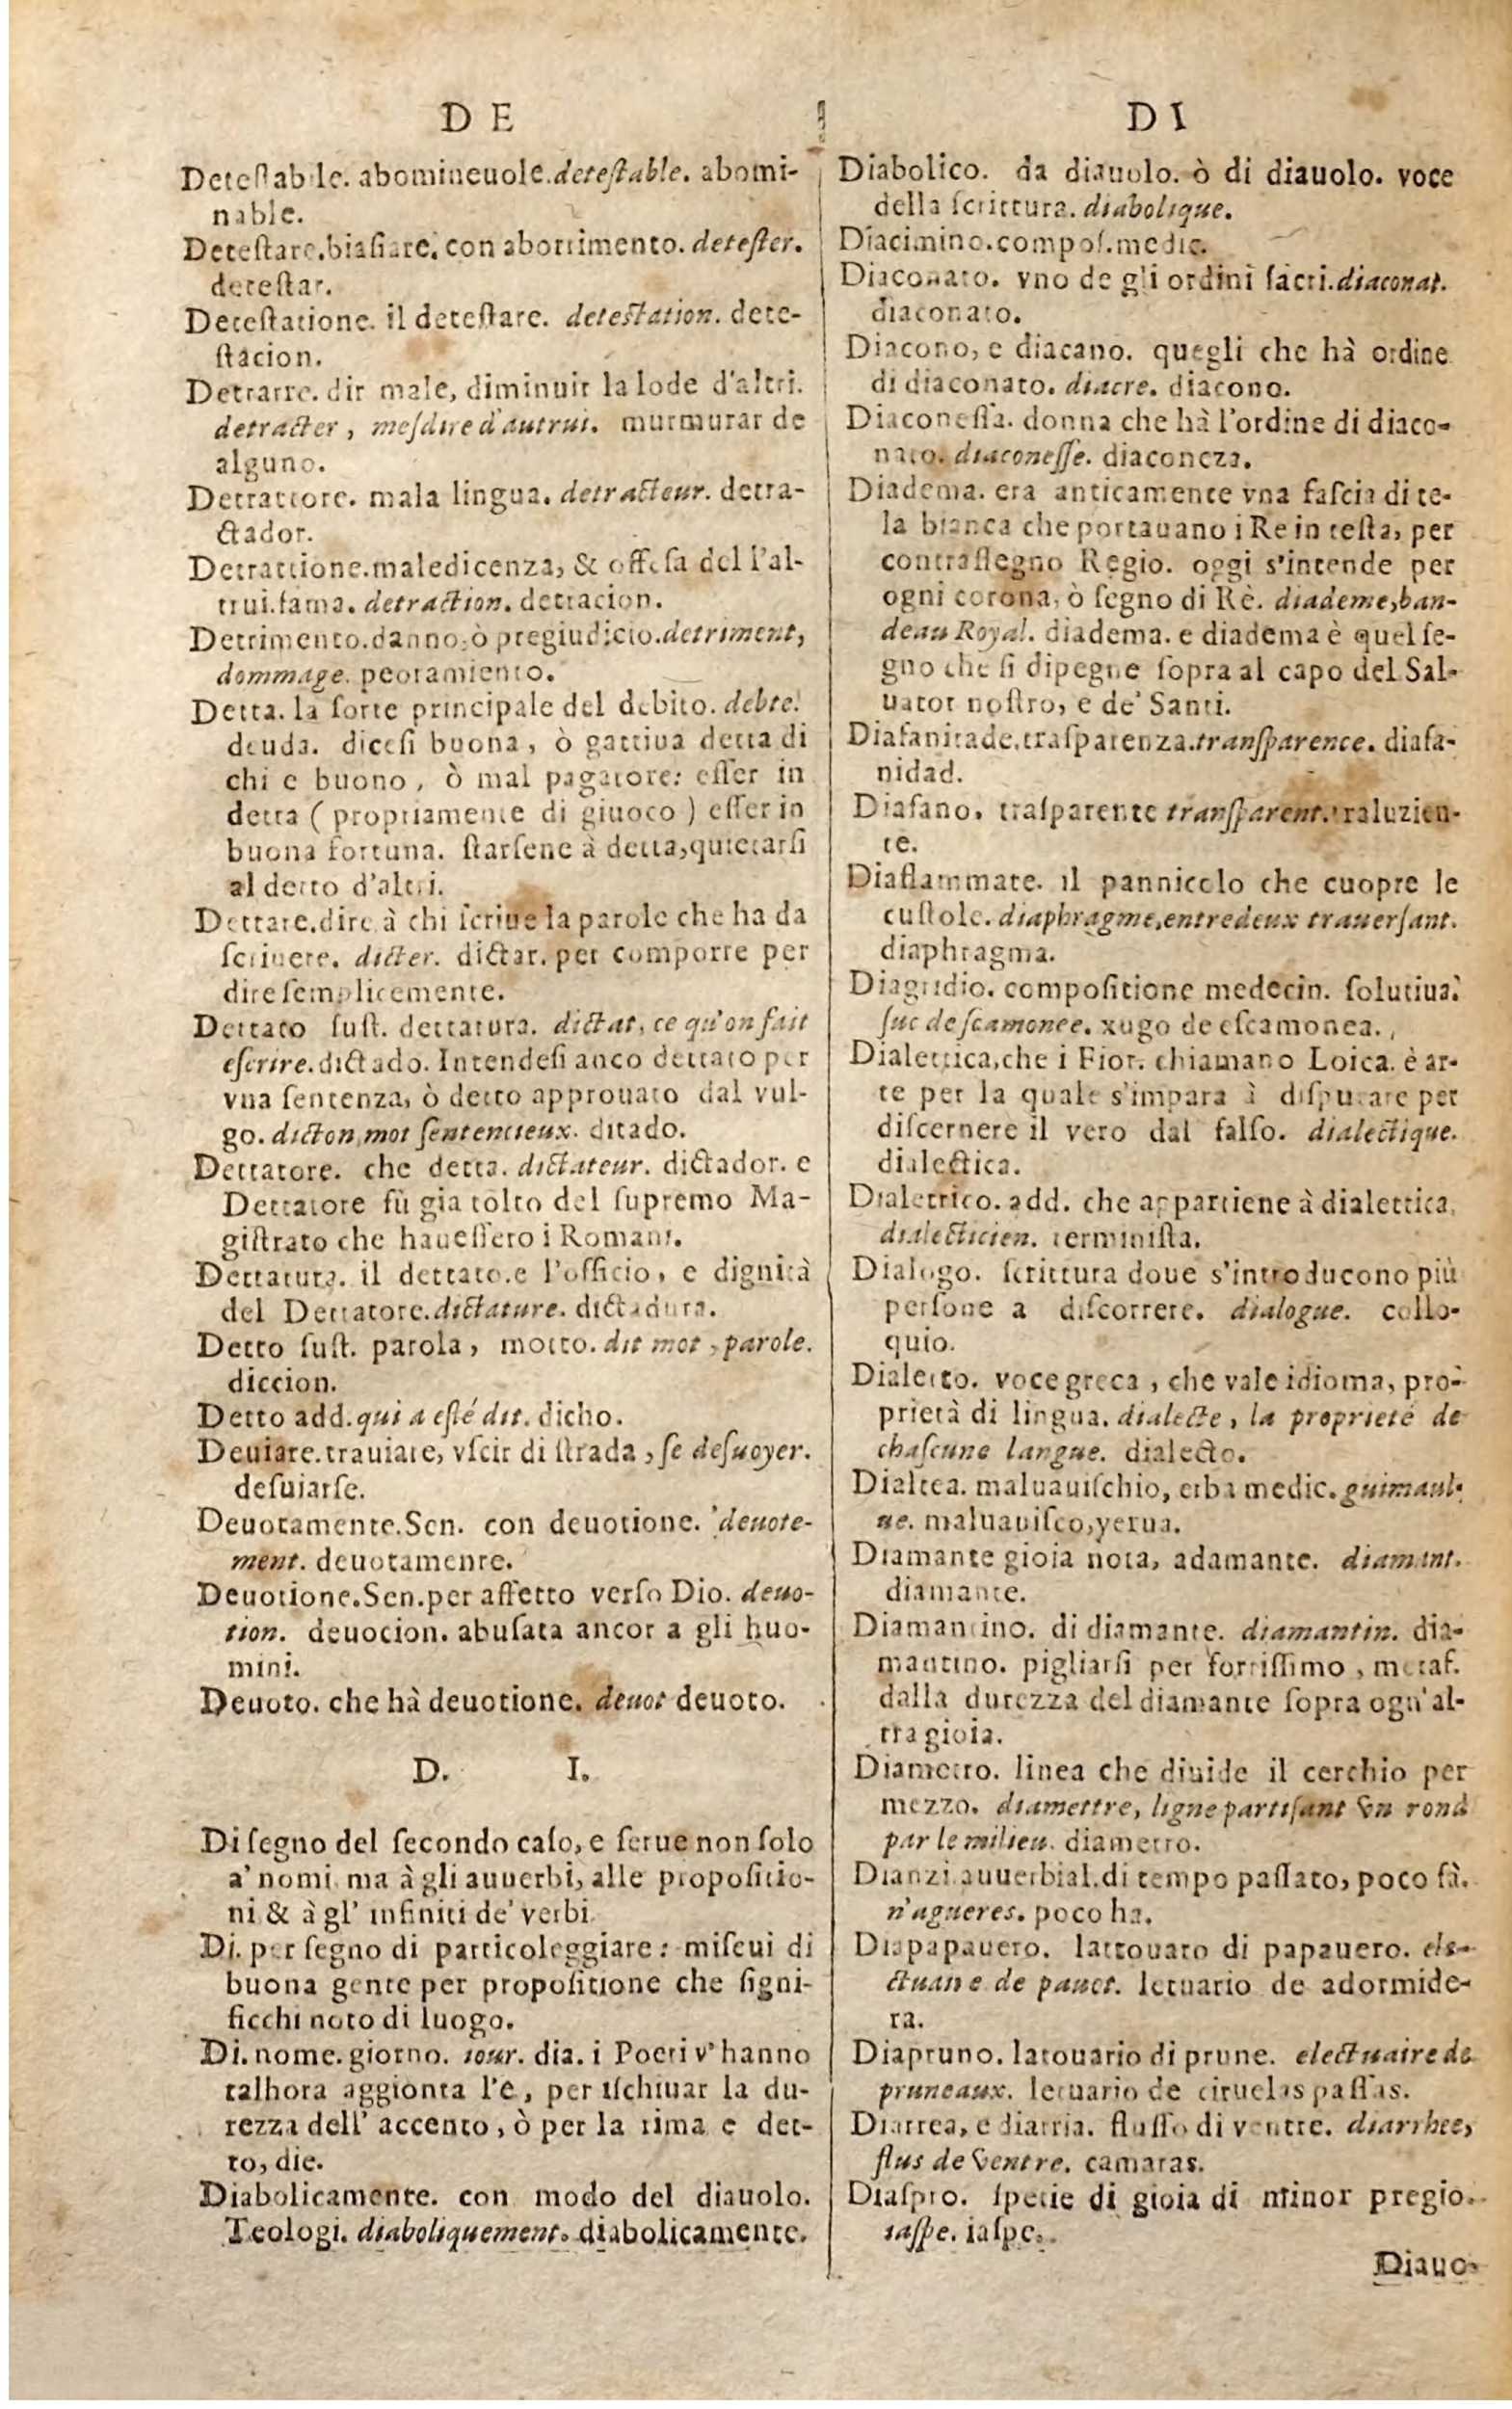 D E
Detestabile. abomineuole. detestable. abomi-
nable.
Detestare. biasiare. con aborrimento. detester.
detestar.
Detestatione. il detestare. detestation. dete-
stacion.
Detrarre. dir male, diminuir la lode d'altri.
detracter, mesdire d'autrui. murmurar de
alguno.
Detrattore. mala lingua. detracteur. detra-
ctador.
Detrattione. maledicenza, & offesa del l'al-
trui. fama. detraction. detracion.
Detrimento. danno, ò pregiudicio. detriment,
dommage. peoramiento.
Detta. la sorte principale del debito. debte.
deuda. dicesi buona, ò gattiua detta di
chi e buono, ò mal pagatore: esser in
detta (propriamente di giuoco) esser in
buona fortuna. starsene à detta, quietarsi
al detto d'altri.
Dettare. dire à chi scriue la parole che ha da
scriuere. dicter. dictar. per comporre per
dire semplicemente.
Dettato sust. dettatura. dictat, ce qu'on fait
escrire. dictado. Intendesi anco dettato per
vna sentenza, ò detto approuato dal vul-
go. dicton, mot sentencieux. ditado.
Dettatore. che detta. dictateur. dictador. e
Dettatore fù gia tolto del supremo Ma-
gistrato che hauessero i Romani.
Dettatura. il dettato. e l'officio, e dignità
del Dettatore. dictature. dictadura.
Detto sust. parola, motto. dit mot, parole.
diccion.
Detto add. qui a esté dit. dicho.
Deuiare. trauiare, vscir di strada, se desuoyer.
desuiarse.
Deuotamente. Sen. con deuotione. deuote-
ment. deuotamente.
Deuotione. Sen. per affetto verso Dio. deuo-
tion. deuocion. abusata ancor a gli huo-
mini.
Deuoto. che hà deuotione. deuot deuoto.
D. I.
Di segno del secondo caso, e serue non solo
a' nomi ma à gli auuerbi, alle propositio-
ni & à gl' infiniti de' verbi
Di. per segno di particoleggiare: miscui di
buona gente per propositione che signi-
ficchi noto di luogo.
Di. nome. giorno. iour. dia. i Poeti v'hanno
talhora aggionta l'e, per ischiuar la du-
rezza dell' accento, ò per la rima e det-
to, die.
Diabolicamente. con modo del diauolo.
Teologi. diaboliquement. diabolicamente.
D I
Diabolico. da diauolo. ò di diauolo. voce
della scrittura. diabolique.
Diacimino. compos. medic.
Diaconato. vno de gli ordini sacri. diaconat.
diaconato.
Diacono, e diacano. quegli che hà ordine
di diaconato. diacre. diacono.
Diaconessa. donna che hà l'ordine di diaco-
nato. diaconesse. diaconeza.
Diadema. era anticamente vna fascia di te-
la bianca che portauano i Re in testa, per
contrassegno Regio. oggi s'intende per
ogni corona, ò segno di Rè. diademe, ban-
deau Royal. diadema. e diadema è quel se-
gno che si dipegne sopra al capo del Sal-
uator nostro, e de' Santi.
Diafanitade. trasparenza. transparence. diafa-
nidad.
Diafano. trasparente transparent. raluzien-
te.
Diaflammate. il pannicolo che cuopre le
custole. diaphragme, entredeux trauersant.
diaphragma.
Diagridio. compositione medecin. solutiua.
suc de scamonee. xugo de escamonea.
Dialettica, che i Fior. chiamano Loica. è ar-
te per la quale s'impara à disputare per
discernere il vero dal falso. dialectique.
dialectica.
Dialettico. add. che appartiene à dialettica,
dialecticien. terminista.
Dialogo. scrittura doue s'introducono più
persone a discorrere. dialogue. collo-
quio.
Dialetto. voce greca, che vale idioma, pro-
prietà di lingua. dialecte, la proprieté de
chascune langue. dialecto.
Dialtea. maluauischio, erba medic. guimaul-
ue. maluauisco, yerua.
Diamante gioia nota, adamante. diamant.
diamante.
Diamantino. di diamante. diamantin. dia-
mantino. pigliarsi per fortissimo, metaf.
dalla durezza del diamante sopra ogn'al-
tra gioia.
Diametro. linea che diuide il cerchio per
mezzo. diamettre, ligne partisant vn rond
par le milieu. diametro.
Dianzi. auuerbial. di tempo passato, poco fà.
n'agueres. poco ha.
Diapapauero. lattouaro di papauero. ele-
ctuaire de pauot. letuario de adormide-
ra.
Diapruno. latouario di prune. electuaire de
pruneaux. letuario de ciruelas passas.
Diarrea, e diarria. flusso di ventre. diarrhee,
flus de ventre. camaras.
Diaspro. spetie di gioia di minor pregio.
iaspe. iaspe.
Diauo-